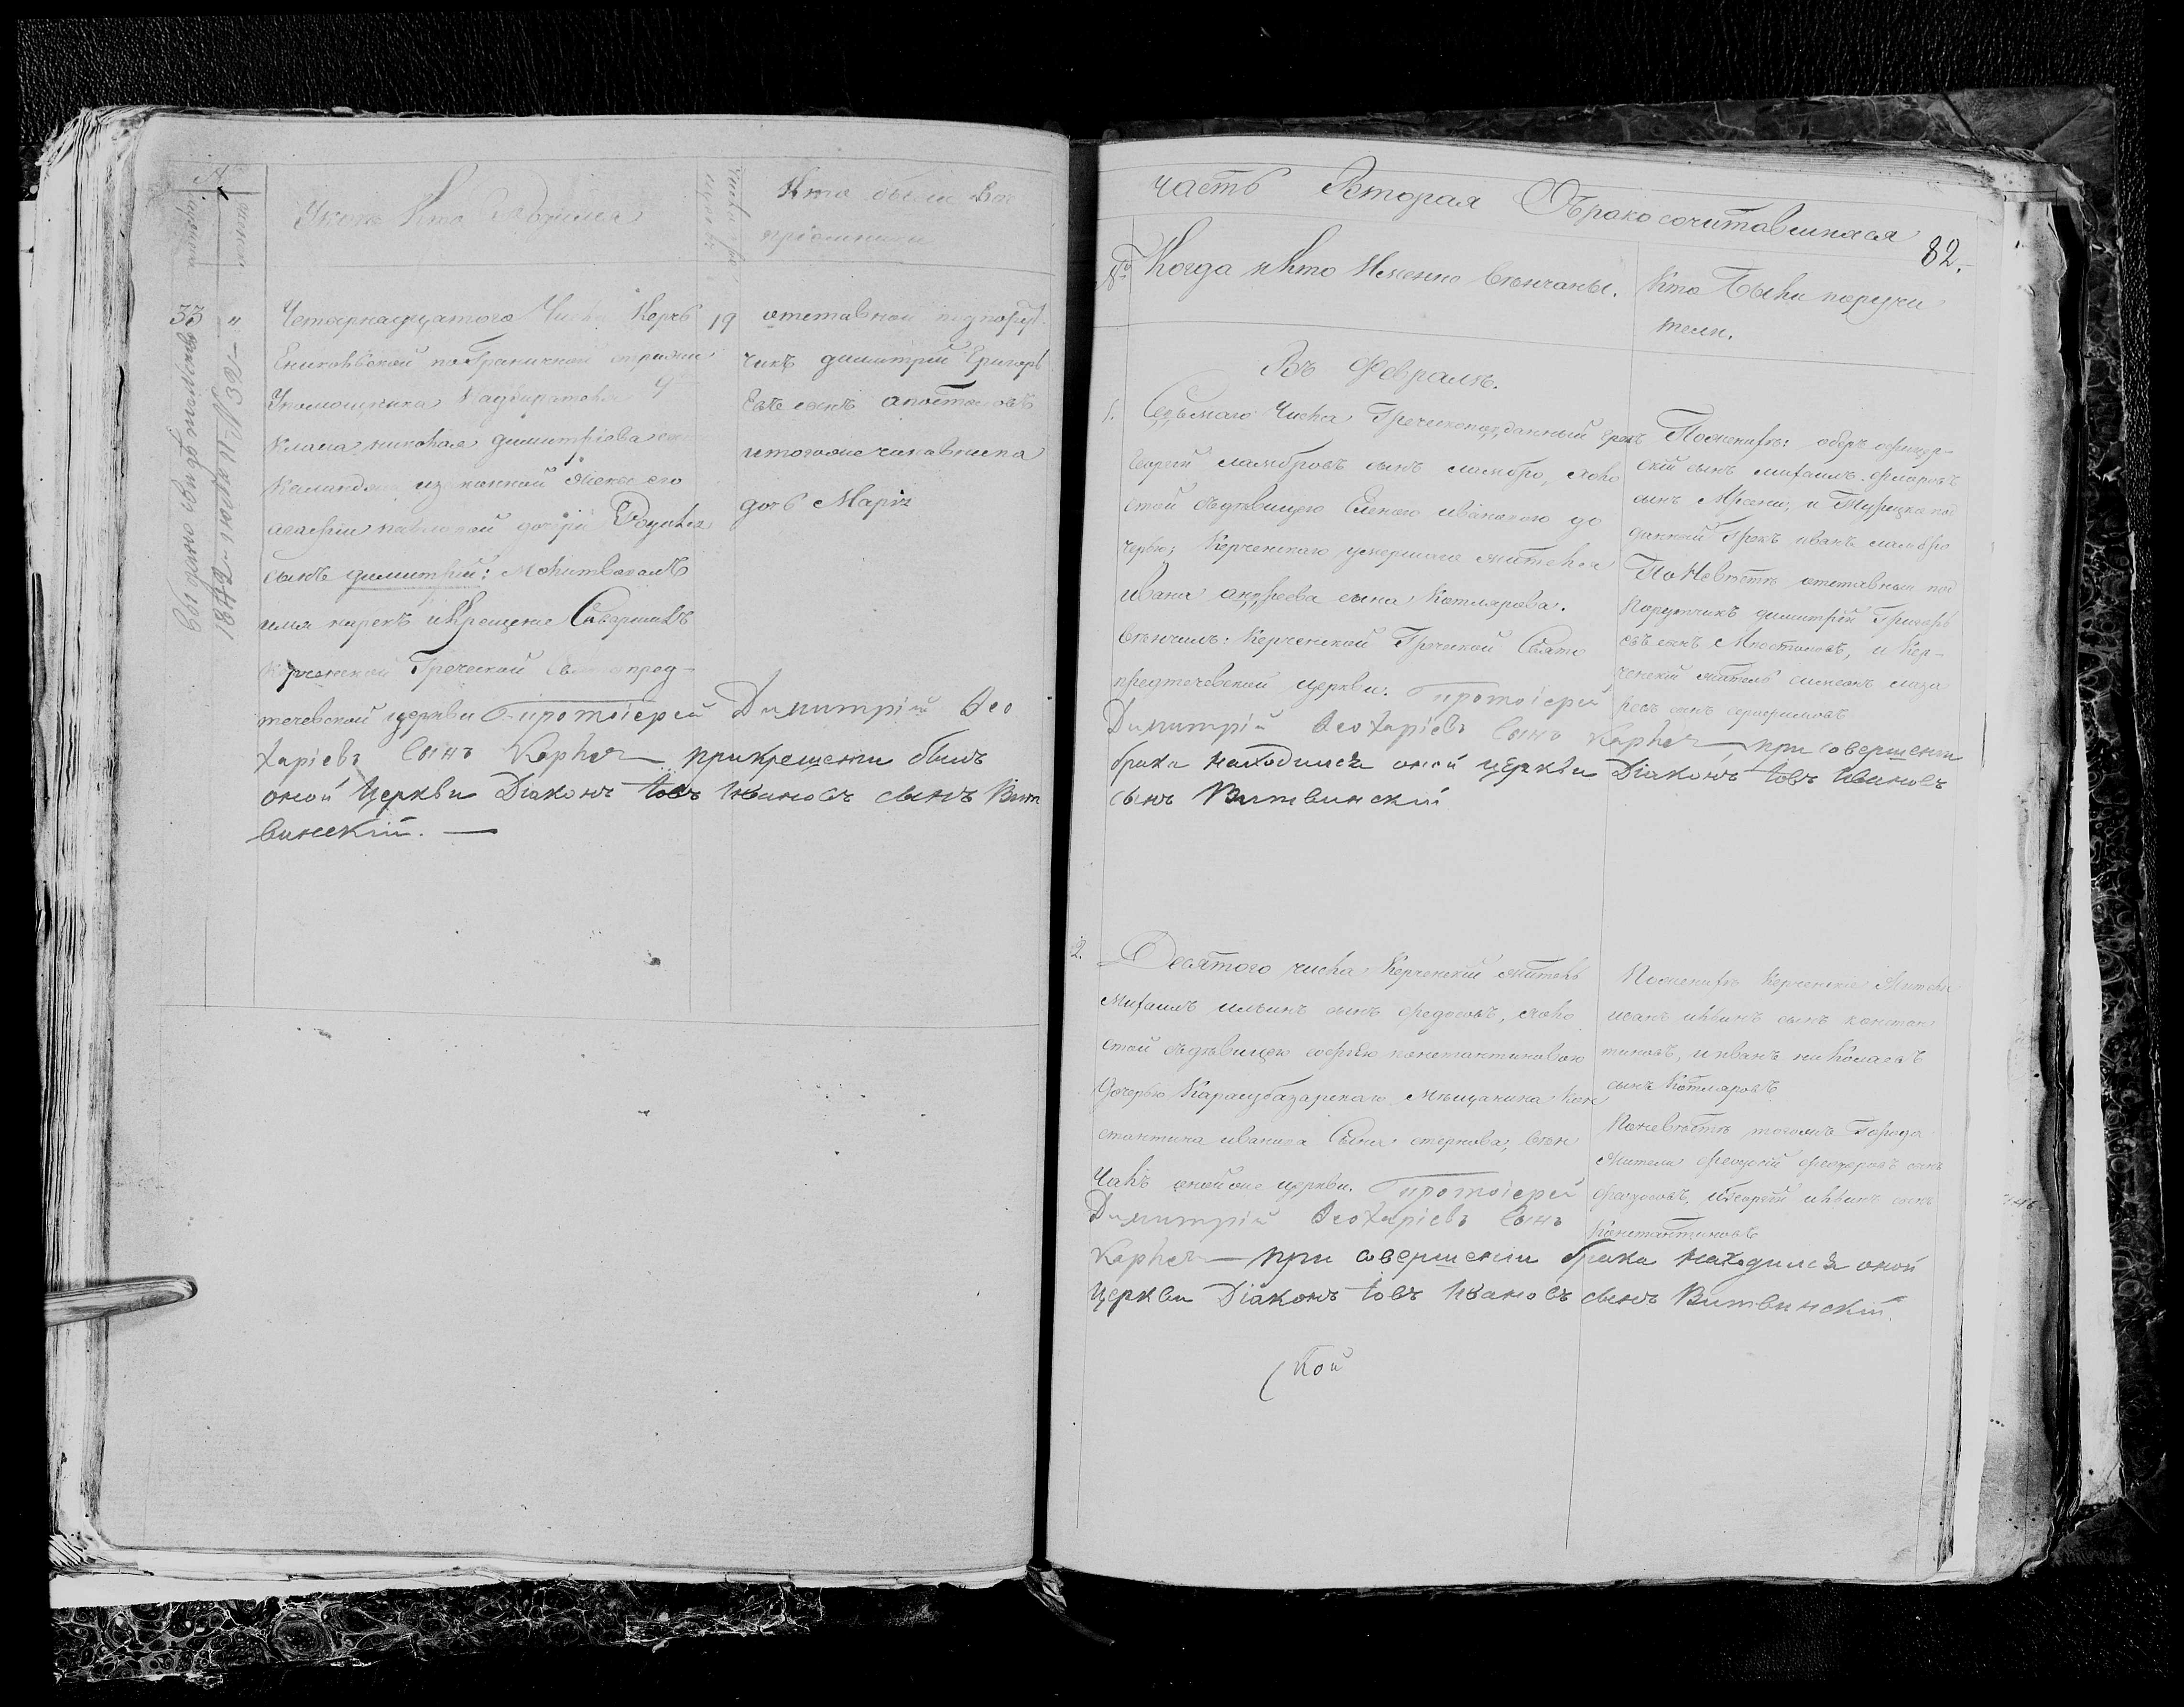 У кого кто родился
Кто были вос
пріемники
33 " Четырнадцатого Числа Керчь 19
Ениковской пограничной стражи
У помощника Надзирателя
николая димитріева
законной жены его
павловой дочери Родился
сынъ димитрій: Молитвовалъ
имя нарекъ и Крещеніе Совершилъ
Керченской Греческой пред-
течевской церкви Протоіерей Димитрій Ѳео
харіевъ Сынъ прикрещеніи былъ
оной Церкви Діаконъ Іовъ Ивановъ сынъ Вит
винскій.
отставной подпорут
чикъ димитрій Григорь
евъ сынъ апостоловъ
итогоже чиновника
дочь Марія
Выдано свидѣтельство
1842 № 32
часть Вторая О бракосочитавшихся
82.
№ Когда и кто Именно вѣнчаны.
Кто Были поручи
тели.
Въ Февралѣ.
1. Седьмаго Числа Греческоподданный грекъ
Георгій ламбровъ сынъ ламбро, холо
стой съдѣвицею Еленою ивановою до
черью; Керченскаго умершаго жителя
Ивана андреева сына Котлярова.
вѣнчилъ: Керченской Греческой Свято
предтечевской церкви. Протоіерей
Димитрій Ѳеохаріевъ Сынъ при совершеніи
брака находился оной церкви Діаконъ Іовъ Ивановъ
сынъ Витвинскій
По женихѣ: оберъ офицер-
скій сынъ михаилъ
сынъ и Турецкопод
данный Грекъ иванъ ламбро
По Невѣстѣ отставный под
Порутчикъ димитрій Григорь
евъ сынъ Апостоловъ, и Кер-
ченскій житель симеонъ лаза
ревъ сынъ серафимовъ
2. Десятого числа Керченскій житель
Михаилъ ильинъ сынъ Федосовъ, холо
стой съдѣвицею софіею константиновою
Дочерью Карасубазарскаго Мѣщанина Кон
стантина иванова Сына вѣн
Чалъ онойже церкви. Протоіерей
Димитрій Ѳеохаріевъ Сынъ
при совершеніи брака находился оной
Церкви Діаконъ Іовъ Ивановъ сынъ Витвинскій.
По женихѣ Керченскіе Жители
иванъ ильинъ сынъ констан
тиновъ, и иванъ николаевъ
сынъ Котляровъ
Поневѣстѣ тогожъ Города
Жители
Федосовъ, и Георгій ильинъ сынъ
Константиновъ
кой